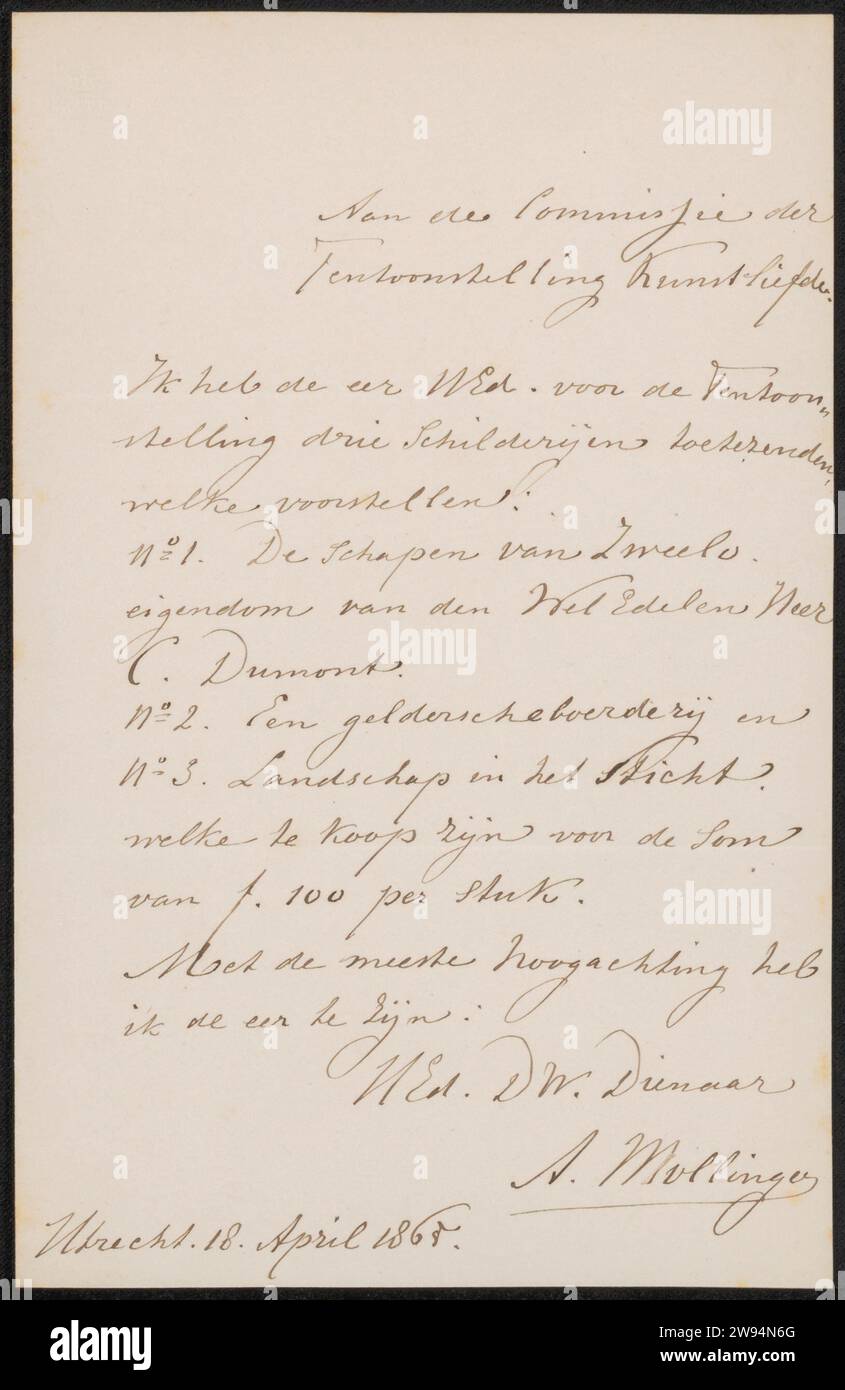 Aan de Commissie der
Tentoonstelling Kunstliefde.
Ik heb de eer UEd. voor de Tentoon„
stelling drie Schilderijen toetezenden,
welke voorstellen:
No 1. De Schapen van Zweelo.
eigendom van den Wel Edelen Heer
C. Dumont.
No 2. Een geldersche boerderij en
No 3. Landschap in het Sticht.
welke te koop zijn voor de Som
van f. 100 per Stuk.
Met de meeste hoogachting heb
ik de eer te zijn:
UEd. DW. Dienaar
A. Mollinger
Utrecht. 18. April 186
alamy
alamy
alamy
alamy
alamy
alamy
alamy
Image ID: 2W94N6G
www.alamy.com